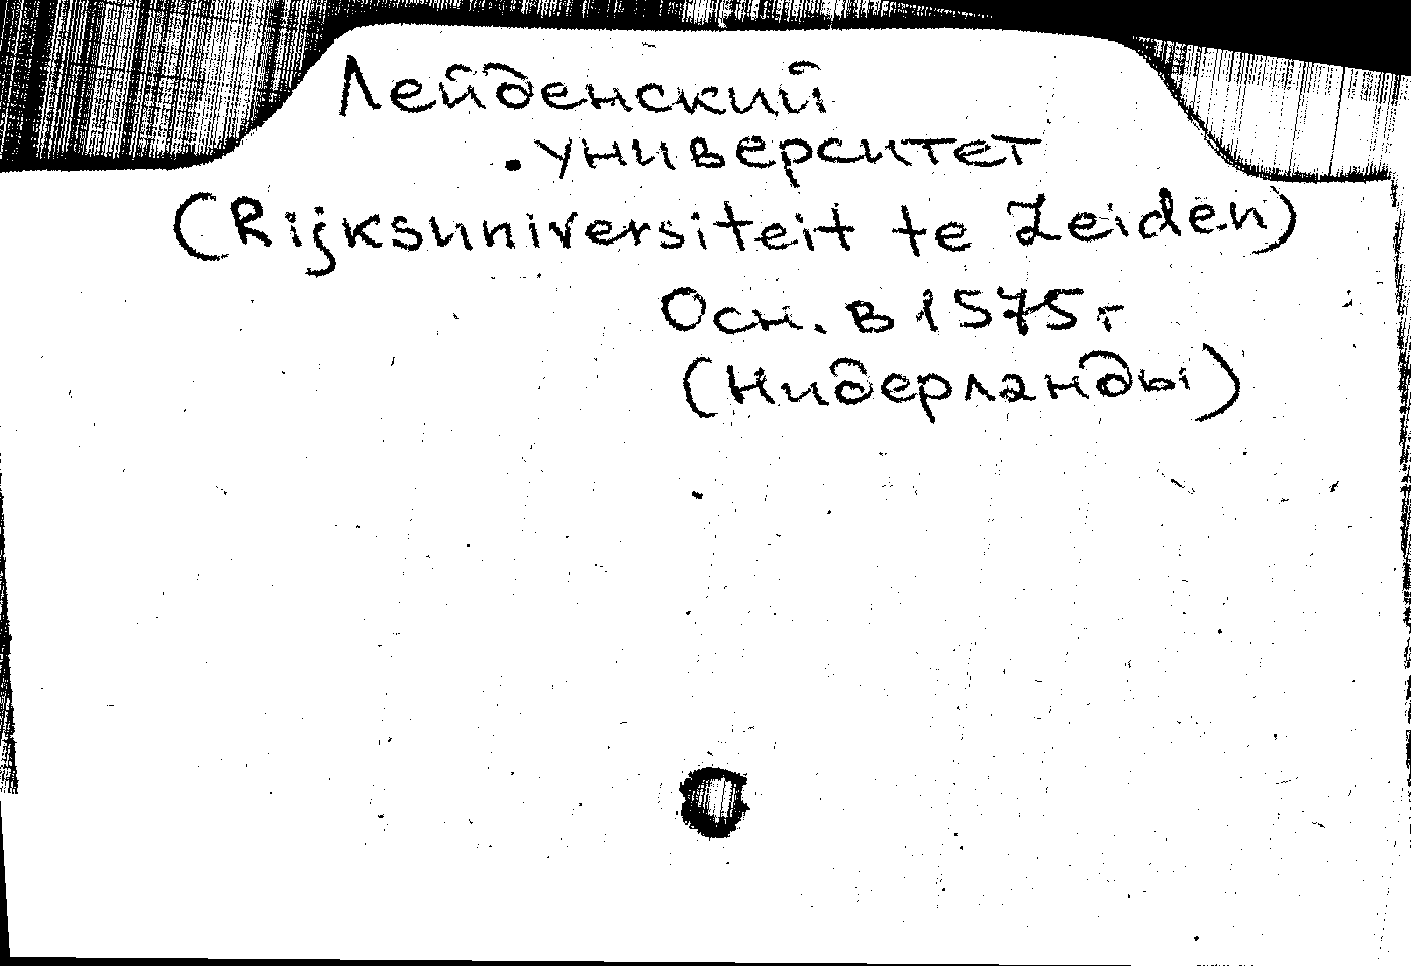 Лейденский
университет
(Rijksuniversiteit te Leiden)
Осн. в 1575 г
(Нидерланды)